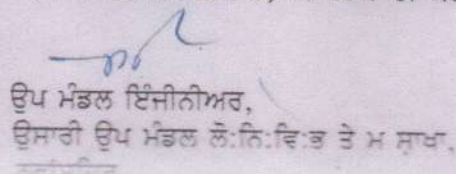 ਉਪ ਮੰਡਲ ਇੰਜੀਨੀਅਰ,
ਉਸਾਰੀ ਉਪ ਮੰਡਲ ਲੋ:ਨਿ:ਵਿ:ਭ ਤੇ ਮ ਸ਼ਾਖਾ,